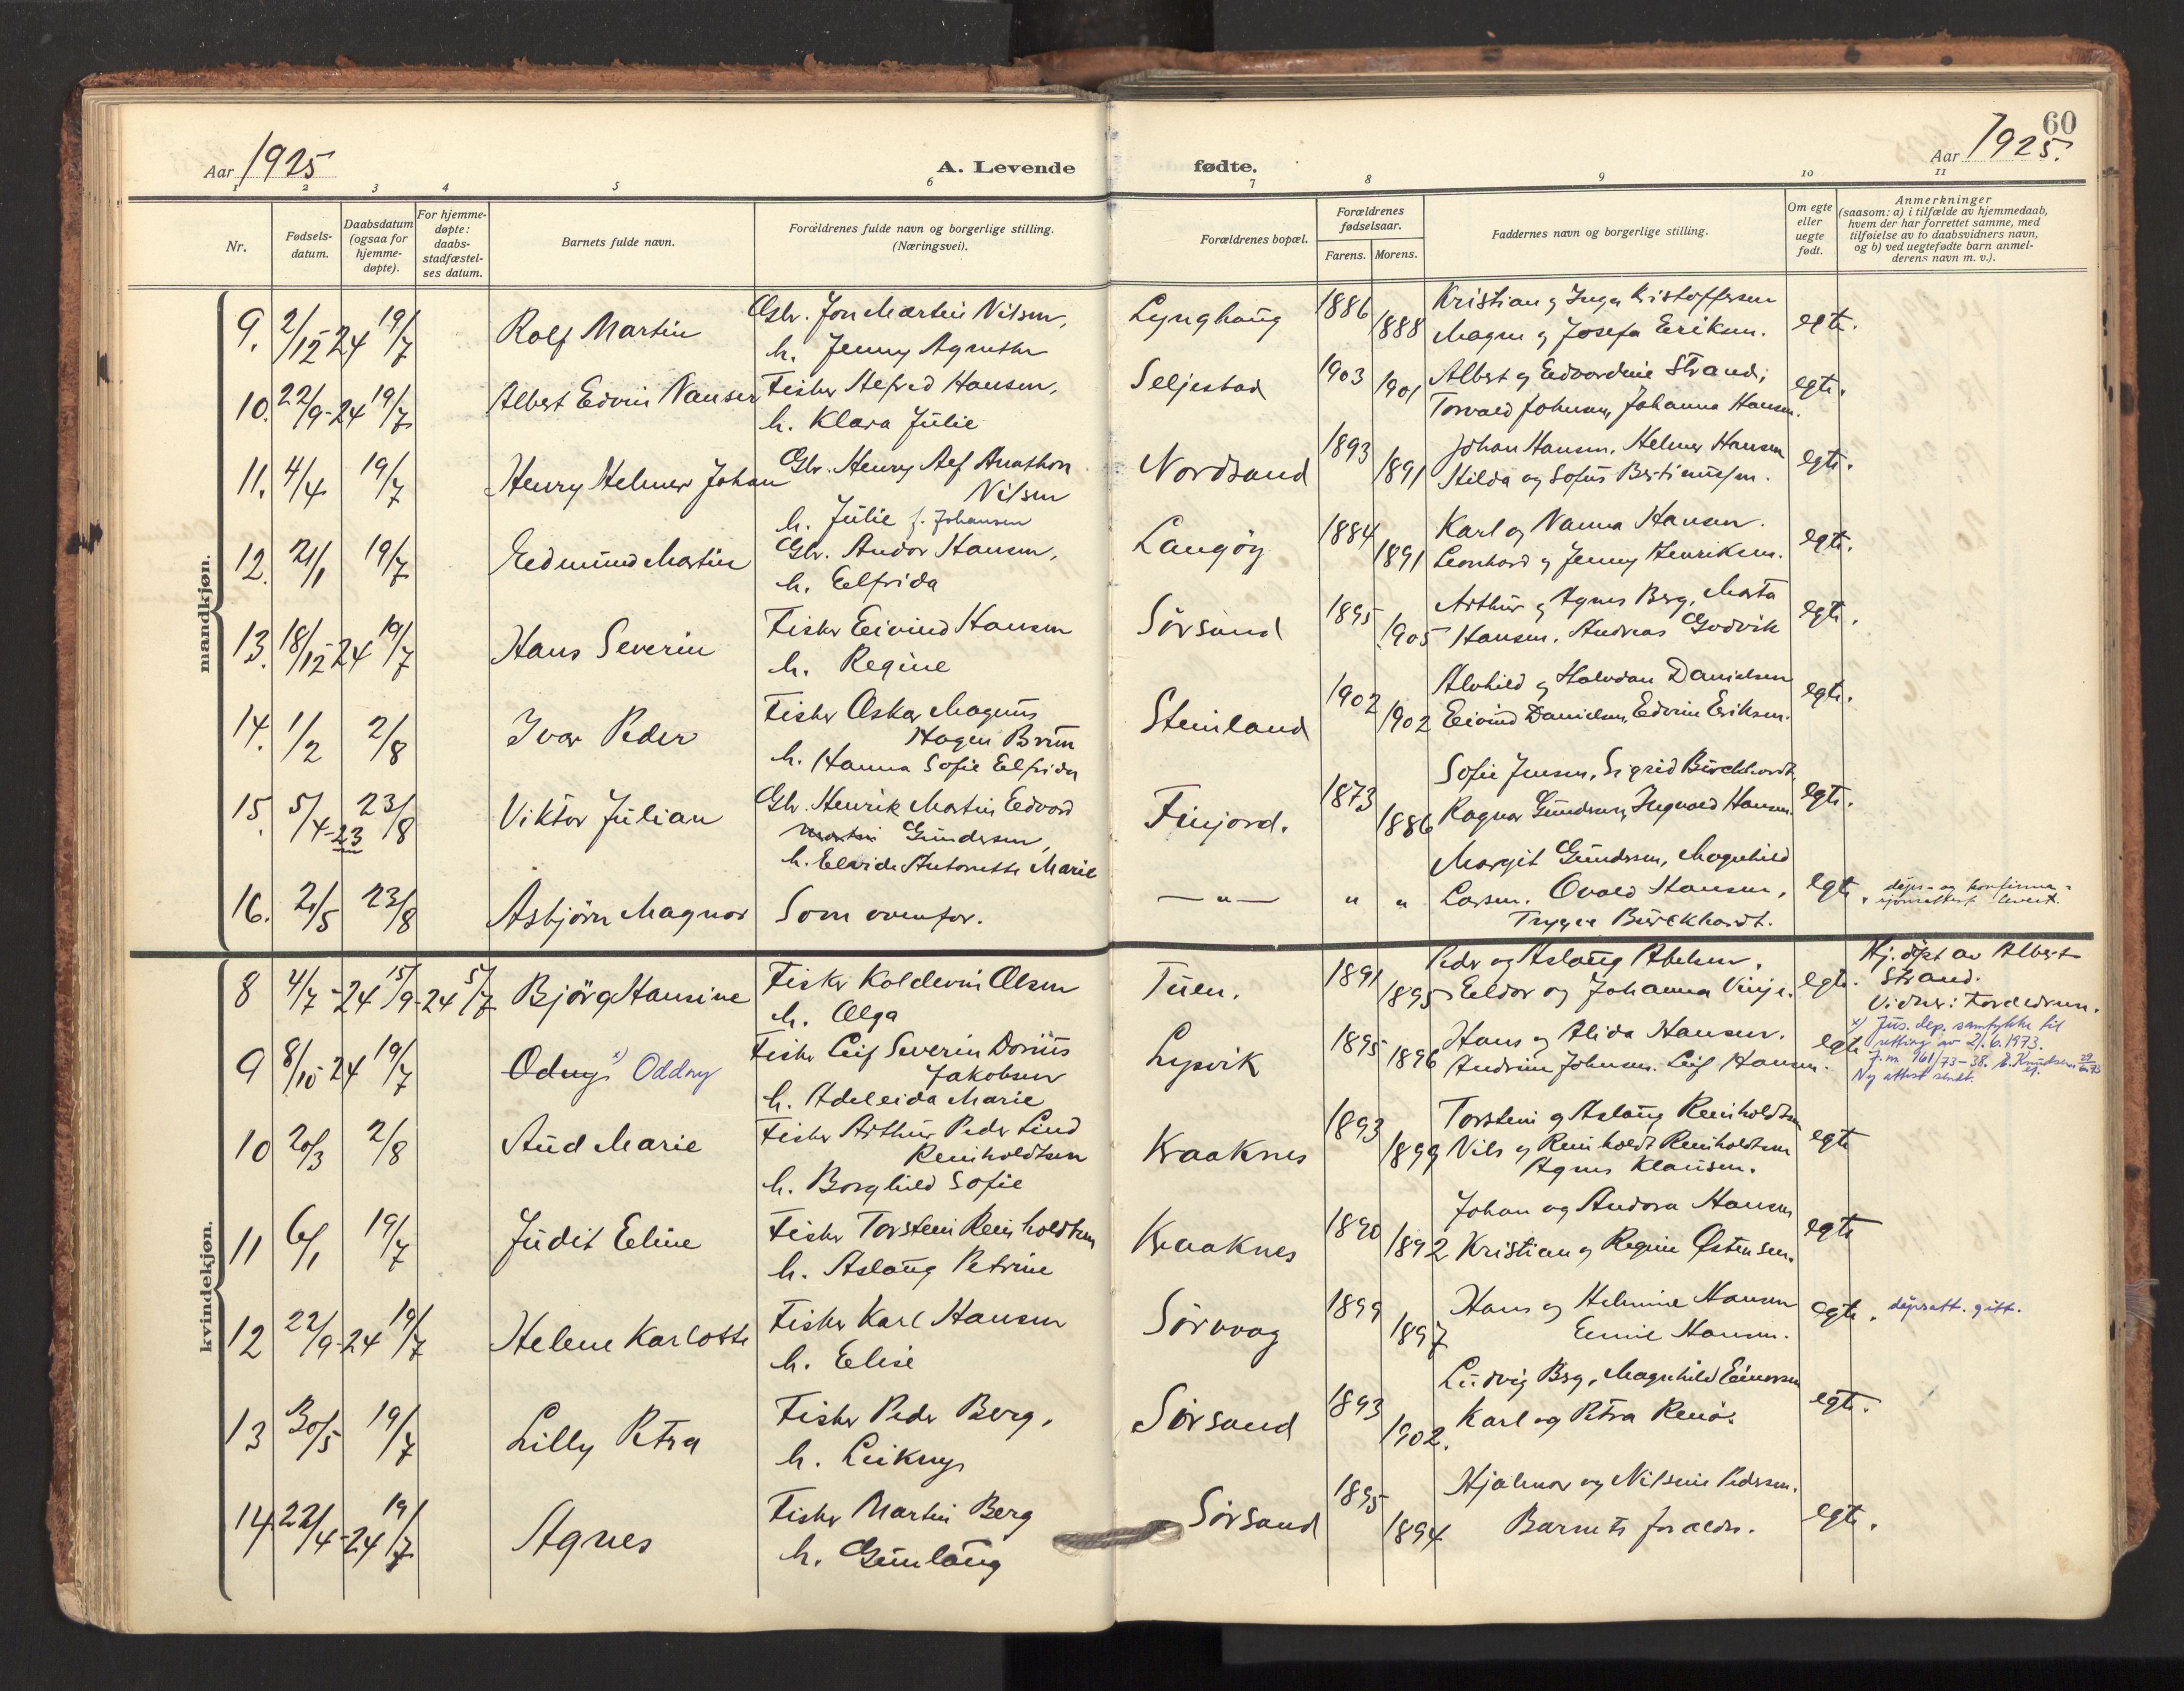 60
Aar 1925
A. Levende
fødte.
Aar 1925.
1 2 3 4 5 6 7 8 9 10 11
Nr.
Fødsels-
datum.
Daabsdatum
(ogsaa for
hjemme-
døpte).
For hjemme-
døpte:
daabs-
stadfæstel-
ses datum.
Barnets fulde navn.
Forældrenes fulde navn og borgerlige stilling.
(Næringsvei).
Forældrenes bopæl.
Forældrenes
fødselsaar.
Farens. Morens.
Faddernes navn og borgerlige stilling.
Om egte
eller
uegte
født.
Anmerkninger
(saasom: a) i tilfælde av hjemmedaab,
hvem der har forrettet samme, med
tilføielse av to daabsvidners navn,
og b) ved uegtefødte barn anmel-
derens navn m. v.).
mandkjøn.
9. 2/12-24 19/7 Rolf Martin Gbr. Jon Martin Nilsen, Lynghaug 1886 Kristian og Inga Kristoffersen egte.
h. Jenny Agnethe 1888 Magne og Josefa Eriksen.
10. 22/9-24 19/7 Albert Edvin Nanser Fisker Alfred Hansen, Seljestad 1903 Albert og Edvardine Strand, egte.
h. Klara Julie 1901 Torvald Johnsen, Johanna Hansen.
11. 4/4 19/7 Henry Helmer Johan Gbr. Henry Alf Anathon Nordsand 1893 Johan Hansen, Helmer Hansen egte.
Nilsen 1891 Hilda og Sofus Bertinussen.
h. Julie f. Johansen
12. 21/1 19/7 Edmund Martin Gbr. Andor Hansen, Langøy 1884 Karl og Nanna Hansen. egte.
h. Elfrida 1891 Leonhard og Jenny Henriksen.
13. 18/12-24 19/7 Hans Severin Fisker Eivind Hansen Sørsand 1895 Arthur og Agnes Berg, Marta egte.
h. Regine 1905 Hansen. Andreas Godvik
14. 1/2 2/8 Ivar Peder Fisker Oskar Magnus Steinland 1902 Alvhild og Halvdan Danielsen egte.
Hagen Brun 1902 Eivind Danielsen, Edvin Eriksen.
h. Hanna Sofie Elfrida
15. 5/4-23 23/8 Viktor Julian Gbr. Henrik Martin Edvard Finjord. 1873 Sofie Jensen, Sigrid Burckhardt, egte.
Martin Gundersen, 1886 Ragnar Gundersen, Ingvald Hansen.
h. Elvide Antonette Marie
16. 21/5 23/8 Asbjørn Magnor Som ovenfor. — " — " " Margit Gundersen, Magnhild egte.
Larsen. Ovald Hansen,
Trygve Burckhardt.
dåps- og konfirma-
sjonsattest levert.
kvindekjøn.
8 4/7-24 15/9-24 5/7 Bjørg Hansine Fisker Koldevin Olsen Tuen. 1891 Peder og Aslaug Abelsen, egte.
h. Olga 1895 Eldor og Johanna Vinje.
Hj.døpt av Albert
Strand.
9 8/10-24 19/7 Odny x) Oddny Fisker Leif Severin Dorius Lysvik 1895 Hans og Alida Hansen. egte
Jakobsen 1896 Andrine Johnsen. Leif Hansen.
h. Adeleida Marie
x) Jus. dep. samtykke til
retting av 21.6.1973.
J.nr 961/73-38. E. Knudsen
Ny attest sendt.
10 20/3 2/8 Aud Marie Fisker Arthur Peder Lind Kraaknes 1893 Torstein og Aslaug Reinholdtsen egte
Reinholdtsen 1899 Nils og Reinholdt Reinholdtsen
h. Borghild Sofie Agnes Klausen.
11 6/1 19/7 Judit Eline Fisker Torstein Reinholdtsen Kraaknes 1890 Johan og Andora Hansen egte
h. Aslaug Petrine 1892 Kristian og Regine Østensen.
12 22/9-24 19/7 Helene Karlotte Fisker Karl Hansen Sørvaag 1899 Hans og Helmine Hansen egte. dåpsatt. gitt.
h. Elise 1897 Emil Hansen.
13 30/5 19/7 Lilly Petra Fisker Peder Berg, Sørsand 1893 Ludvig Berg, Magnhild Einarsen egte.
h. Leikny 1902. Karl og Petra Renø.
14 22/4-24 19/7 Agnes Fisker Martin Berg Sørsand 1895 Hjalmar og Nilsine Pedersen. egte.
h. Gunlaug 1894 Barnets forældre.